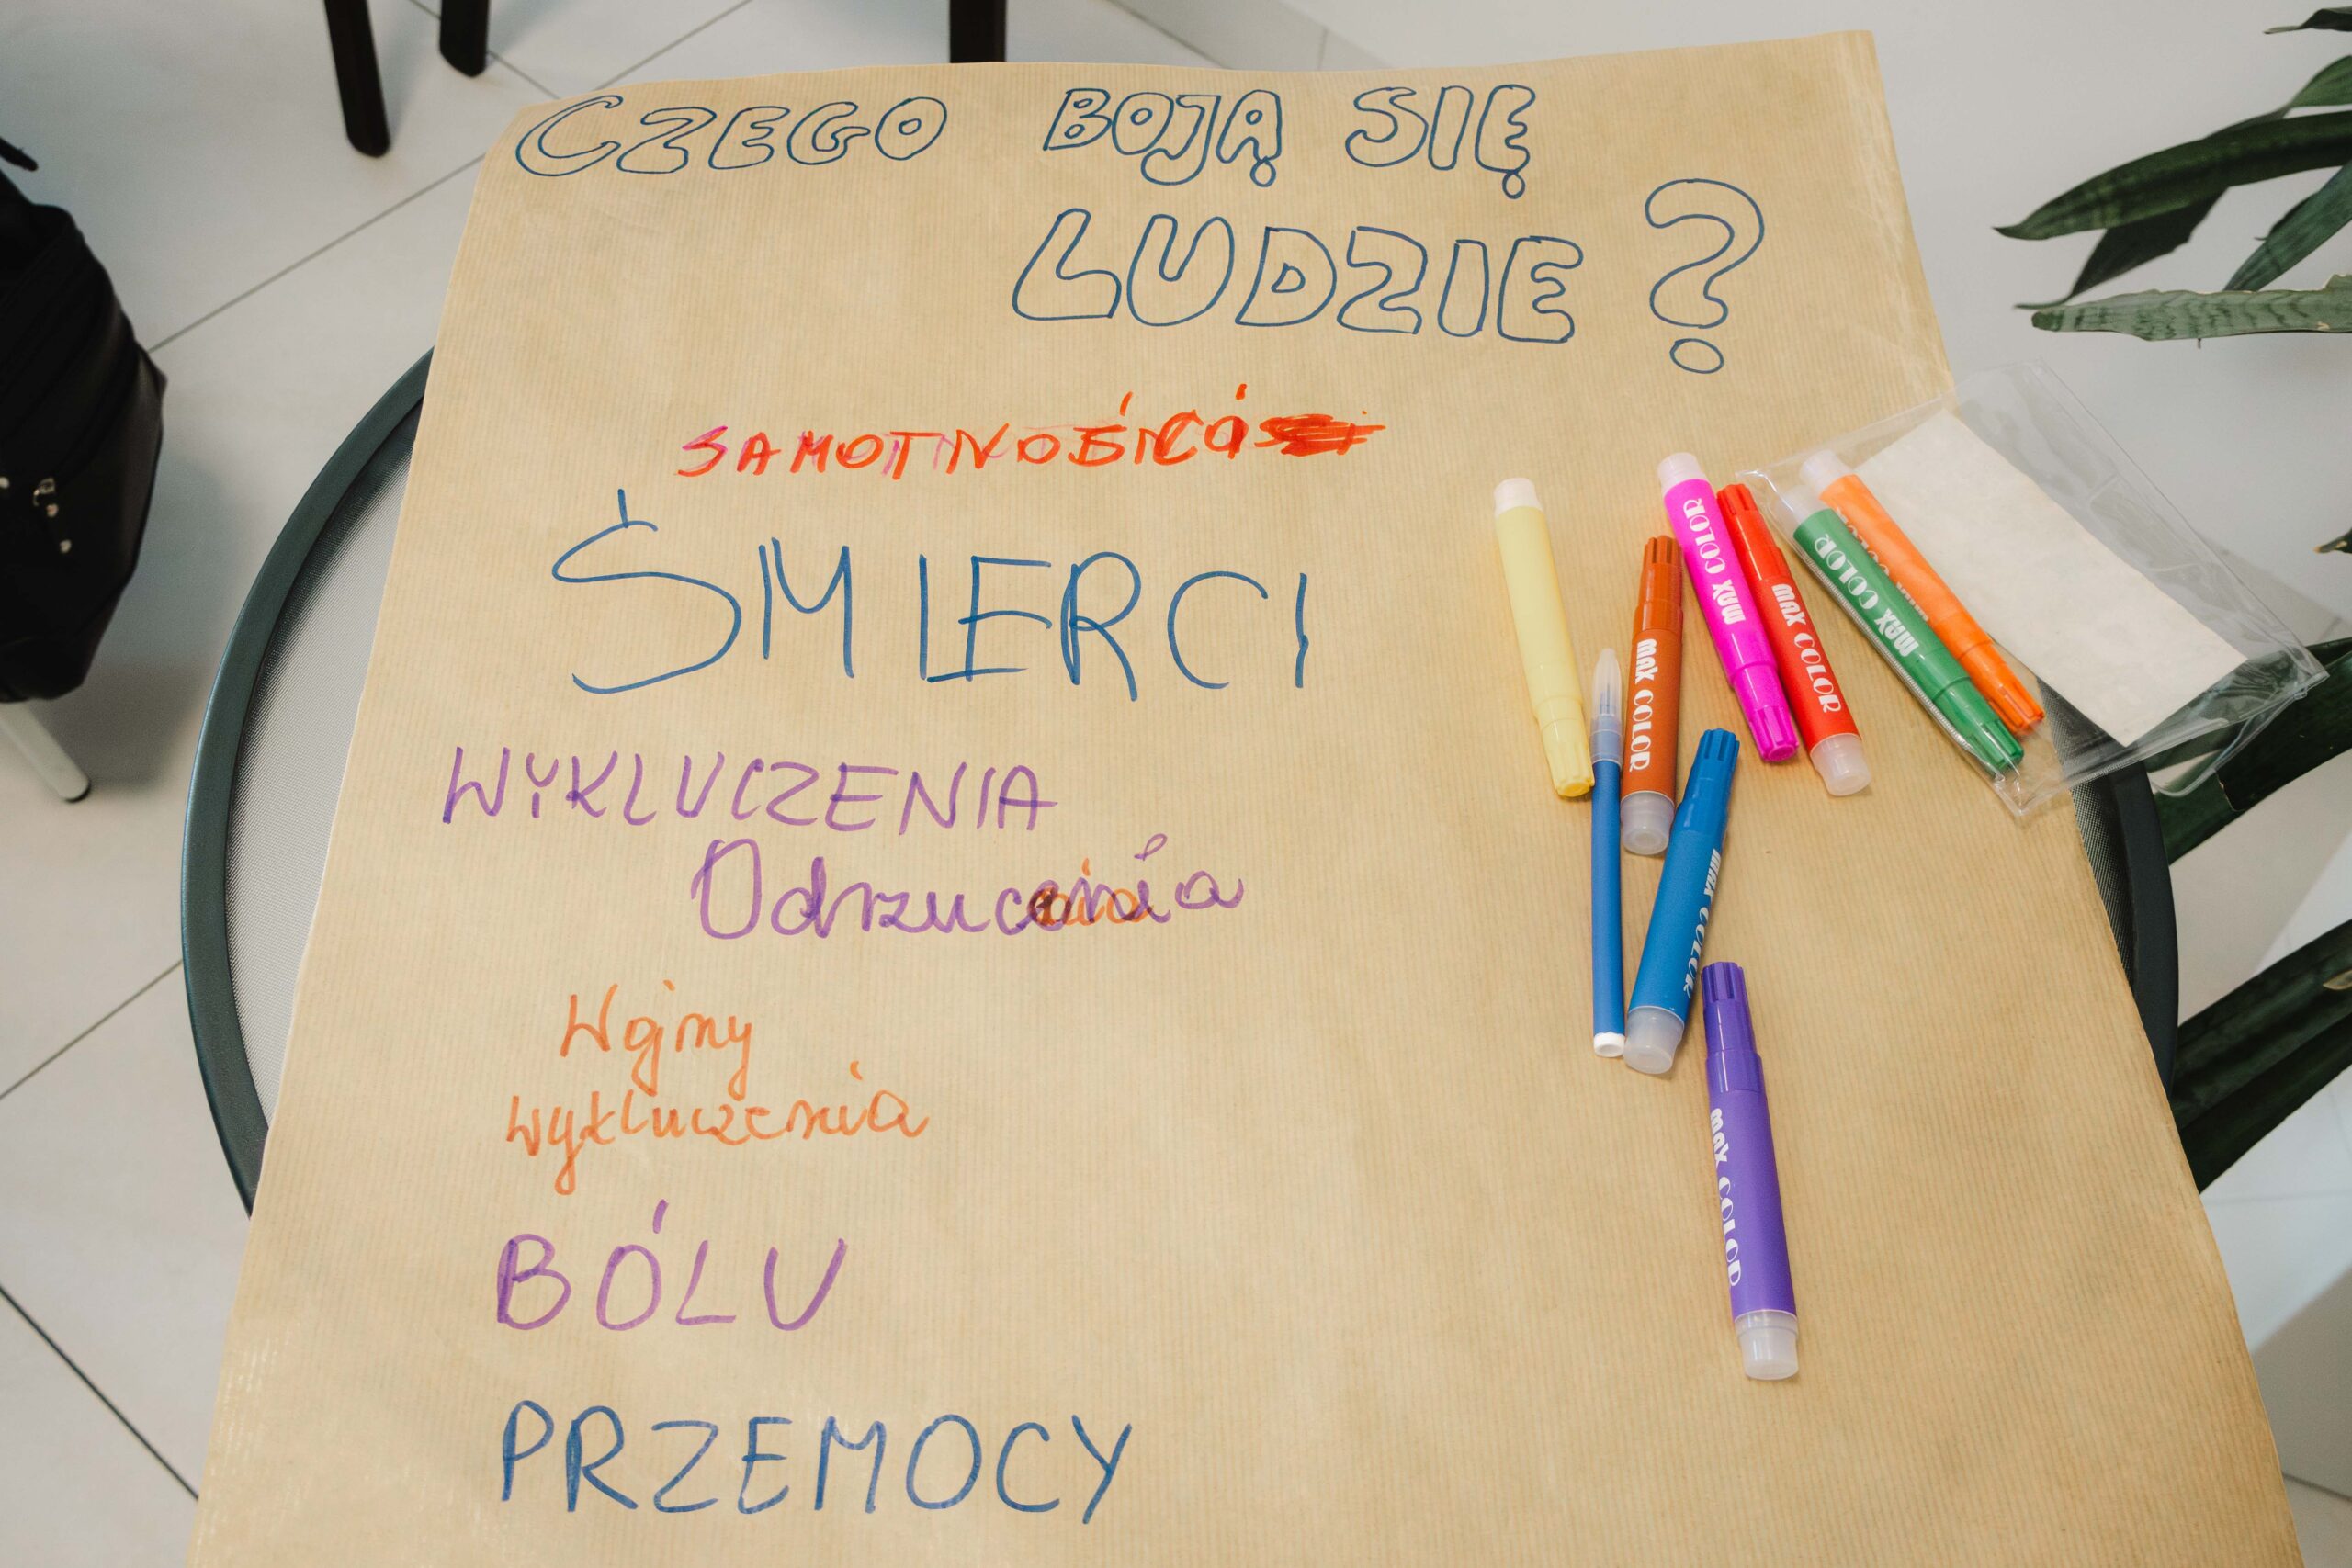 CZEGO BOJĄ SIĘ
LUDZIE?
SAMOTNOŚCI
ŚMIERCI
WYKLUCZENIA
Odrzucenia
Wojny
wykluczenia
BÓLU
PRZEMOCY
MAX COLOR
MAX COLOR
MAX COLOR
MAX COLOR
MAX COLOR
MAX COLOR
MAX COLOR